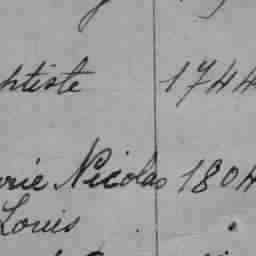 ptiste 1744
rie Nicolas 1804
Louis